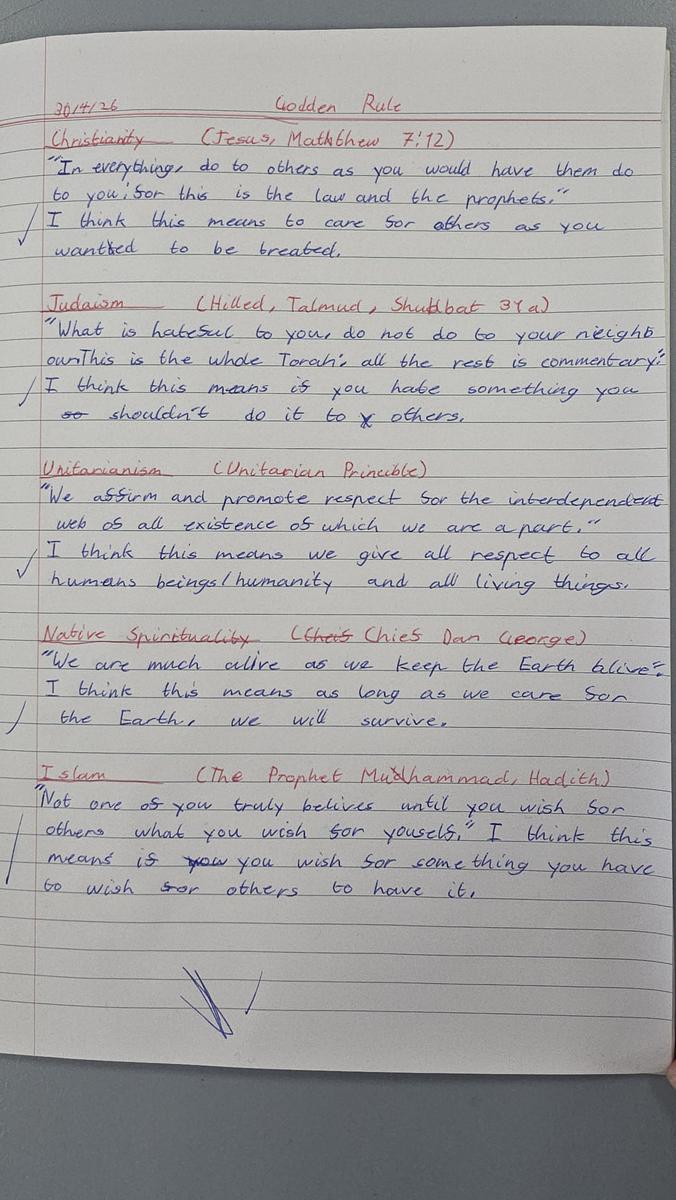 30/4/26 Godden Rule
Christianity (Jesus, Maththew 7:12)
"In everything, do to others as you would have them do
to you; for this is the law and the prophets."
I think this means to care for others as you
wantted to be treated.
Judaism (Hilled, Talmud, Shubbat 31a)
"What is hateful to you, do not do to your neighb
our. This is the whole Torah; all the rest is commentary."
I think this means if you hate something you
so shouldn't do it to others.
Unitarianism (Unitarian Princible)
"We affirm and promote respect for the interdependent
web of all existence of which we are a part."
I think this means we give all respect to all
humans beings/humanity and all living things.
Native Spirituality (Cheif Chief Dan George)
"We are much alive as we keep the Earth alive".
I think this means as long as we care for
the Earth, we will survive.
Islam (The Prophet Muhammad, Hadith)
"Not one of you truly belives until you wish for
others what you wish for youself." I think this
means if you you wish for something you have
to wish for others to have it.